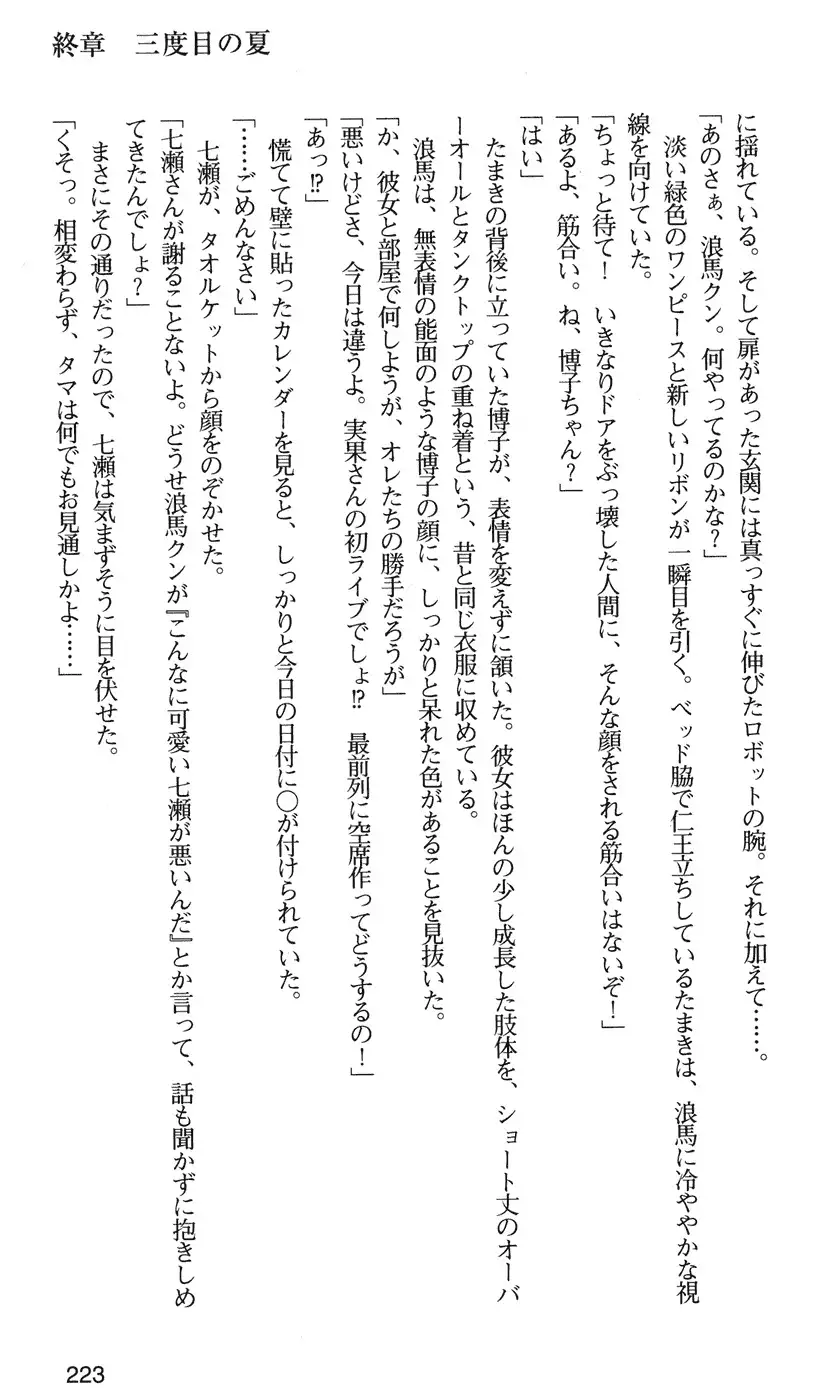 終章　三度目の夏
に揺れている。そして扉があった玄関には真っすぐに伸びたロボットの腕。それに加えて……。
「あのさぁ、浪馬クン。何やってるのかな？」
　淡い緑色のワンピースと新しいリボンが一瞬目を引く。ベッド脇で仁王立ちしているたまきは、浪馬に冷ややかな視
線を向けていた。
「ちょっと待て！　いきなりドアをぶっ壊した人間に、そんな顔をされる筋合いはないぞ！」
「あるよ、筋合い。ね、博子ちゃん？」
「はい」
　たまきの背後に立っていた博子が、表情を変えずに頷いた。彼女はほんの少し成長した肢体を、ショート丈のオーバ
ーオールとタンクトップの重ね着という、昔と同じ衣服に収めている。
　浪馬は、無表情の能面のような博子の顔に、しっかりと呆れた色があることを見抜いた。
「か、彼女と部屋で何しようが、オレたちの勝手だろうが」
「悪いけどさ、今日は違うよ。実果さんの初ライブでしょ!?　最前列に空席作ってどうするの！」
「あっ!?」
　慌てて壁に貼ったカレンダーを見ると、しっかりと今日の日付に○が付けられていた。
「……ごめんなさい」
　七瀬が、タオルケットから顔をのぞかせた。
「七瀬さんが謝ることないよ。どうせ浪馬クンが『こんなに可愛い七瀬が悪いんだ』とか言って、話も聞かずに抱きしめ
てきたんでしょ？」
　まさにその通りだったので、七瀬は気まずそうに目を伏せた。
「くそっ。相変わらず、タマは何でもお見通しかよ……」
223